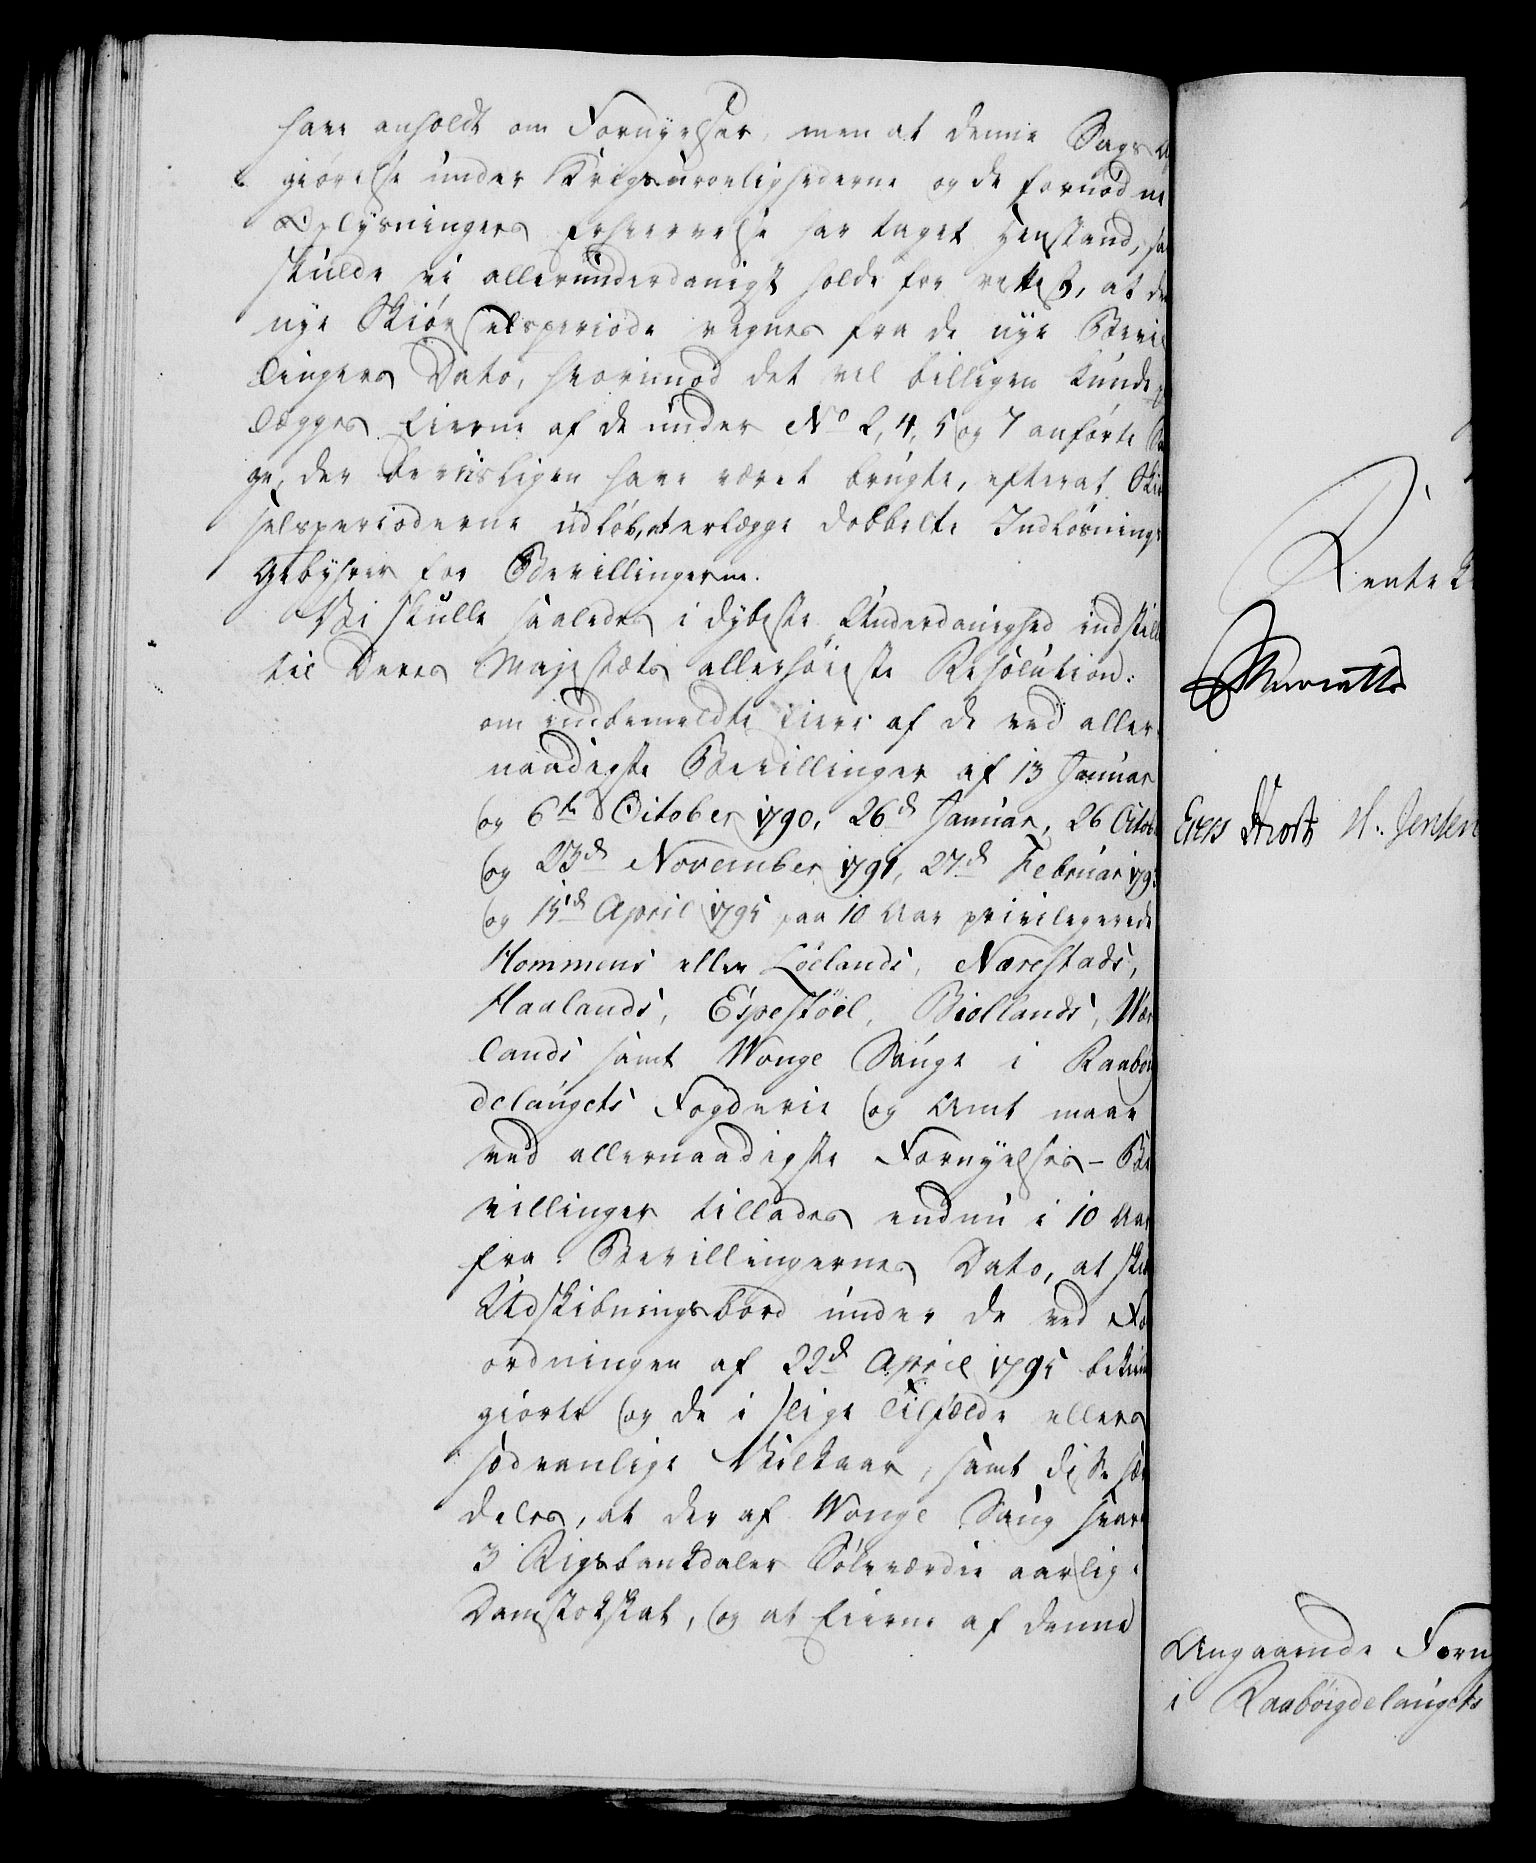 have anholdt om Fornyelser, men at denne Sags Af
giørelse under Krigsuroelighederne og de fornødne
Oplysningers Erhvervelse har taget Henstand, saa
skulde vi allerunderdanigst holde for rettest, at den
nye Skiørselsperiode regnes fra de nye Bevil
lingers Dato, hvorimod det vel billigen kunde
lægges Eierne af de under No 2, 4, 5 og 7 anførte Sau
ge, der beviisligen have været brugte, efterat Skiør
selsperioderne udløb, at erlægge dobbelte Indløsnings
Gebyhrer for Bevillingerne.
Vi skulle saaledes i dybeste Underdanighed indstille
til Deres Majestæts allerhøieste Resolution:
om indbemeldte Eiere af de ved aller
naadigste Bevillinger af 13 Januar
og 6te October 1790, 26d Januar, 26 Octob
og 23d November 1791, 27d Februar 179
og 15d April 1795 paa 10 Aar privilegerede
Hommens eller Löelands, Nærestads,
Haalands, Espestöel, Biollands, Vær
lands samt Wonge Sauge i Raaboig
delaugets Fogderie og Amt maae
ved allernaadigste Fornyelses-Be
villinger tillades endnu i 10 Aar
fra Bevillingernes Dato, at skiære
Udskibningsbord under de ved For
ordningen af 22d April 1795 bekiendt
giorte og de i slige Tilfælde ellers
sædvanlige Vilkaar, samt disse sær
deles, at der af Wonge Saug svares
3 Rigsbankdaler Sølvværdie aarlig
Damstokskat, og at Eierne af denne
Rentek
Eiers Hrosth H. Jensen
Angaaende Forny
i Raaböigdelaugets